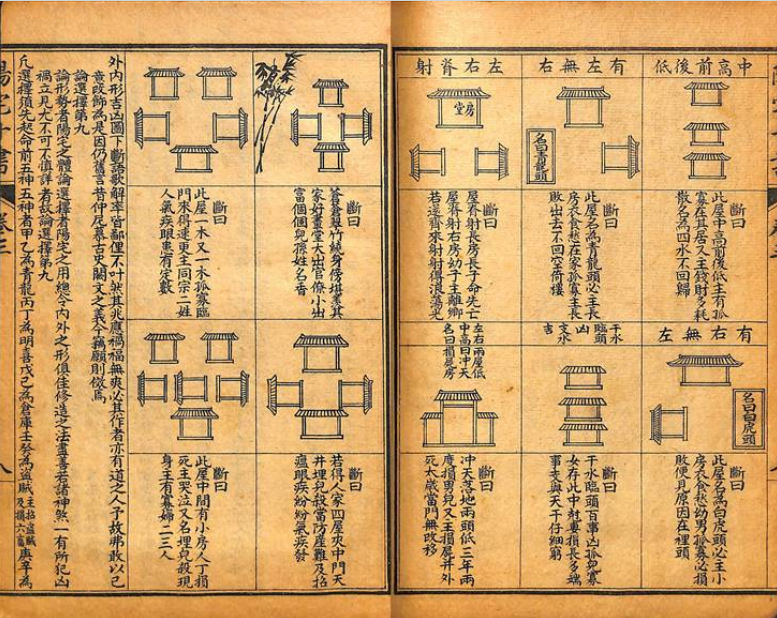 中高前後低
斷曰
此屋中高前後低主有孤
寡在其居又主錢財多耗
散名為四水不回歸
有左無右
名曰青龍頭
斷曰
此屋名為青龍頭必主長
房衣食愁在家孤寡主長
敗出去不回空荷樓
左右脊射
房堂
斷曰
屋脊射長房長子命先亡
屋脊射右房幼子主離鄉
若逢齊來射射得浪蕩光
有右無左
名曰白虎頭
斷曰
此屋名為白虎頭必主小
房衣食愁幼男孤寡必損
敗便見原因在裡頭
干水
臨頭
凶
文水
吉
斷曰
干水臨頭百事凶孤兒寡
女存此中尅妻損長多端
事丈與天干仔細窮
左右兩屋低
中高曰冲天
名曰損屋房
斷曰
冲天落地兩頭低三年兩
度損男兒又主損屋并外
死太歲當門無改移
斷曰
蒼蒼翠竹繞身傍堪羡其
家好畫堂大出官僚小出
富個個兒孫姓名香
斷曰
此屋一木又一木孤寡臨
門來得速更主同宗二姓
人氣疾眼患有定數
斷曰
若得人家四屋夾中門天
井埋兒殺當防產難及招
瘟眼疾紛紛氣疾發
斷曰
此屋中間有小房人丁損
死主哭泣又名埋兒殺現
身主有寡婦二三人
外內形吉凶圖下斷語歌解率皆鄙俚不叶然其兆應禍福無爽必其作者亦有道之人予故弗敢以己
意改飾為是因仍舊言昔仲尼慕古史闕文之義今竊願則傚焉
論選擇第九
論形勢者陽宅之體論選擇者陽宅之用總令內外之形俱佳修造之法盡善若諸神煞一有所犯凶
禍立見尤不可不慎詳者故論選擇第九
凡選擇須先起命前五神五神者甲乙為青龍丙丁為明喜戊己為倉庫壬癸為盜賊主招盜賊及損六畜庚辛為
陽宅十書
卷三
八